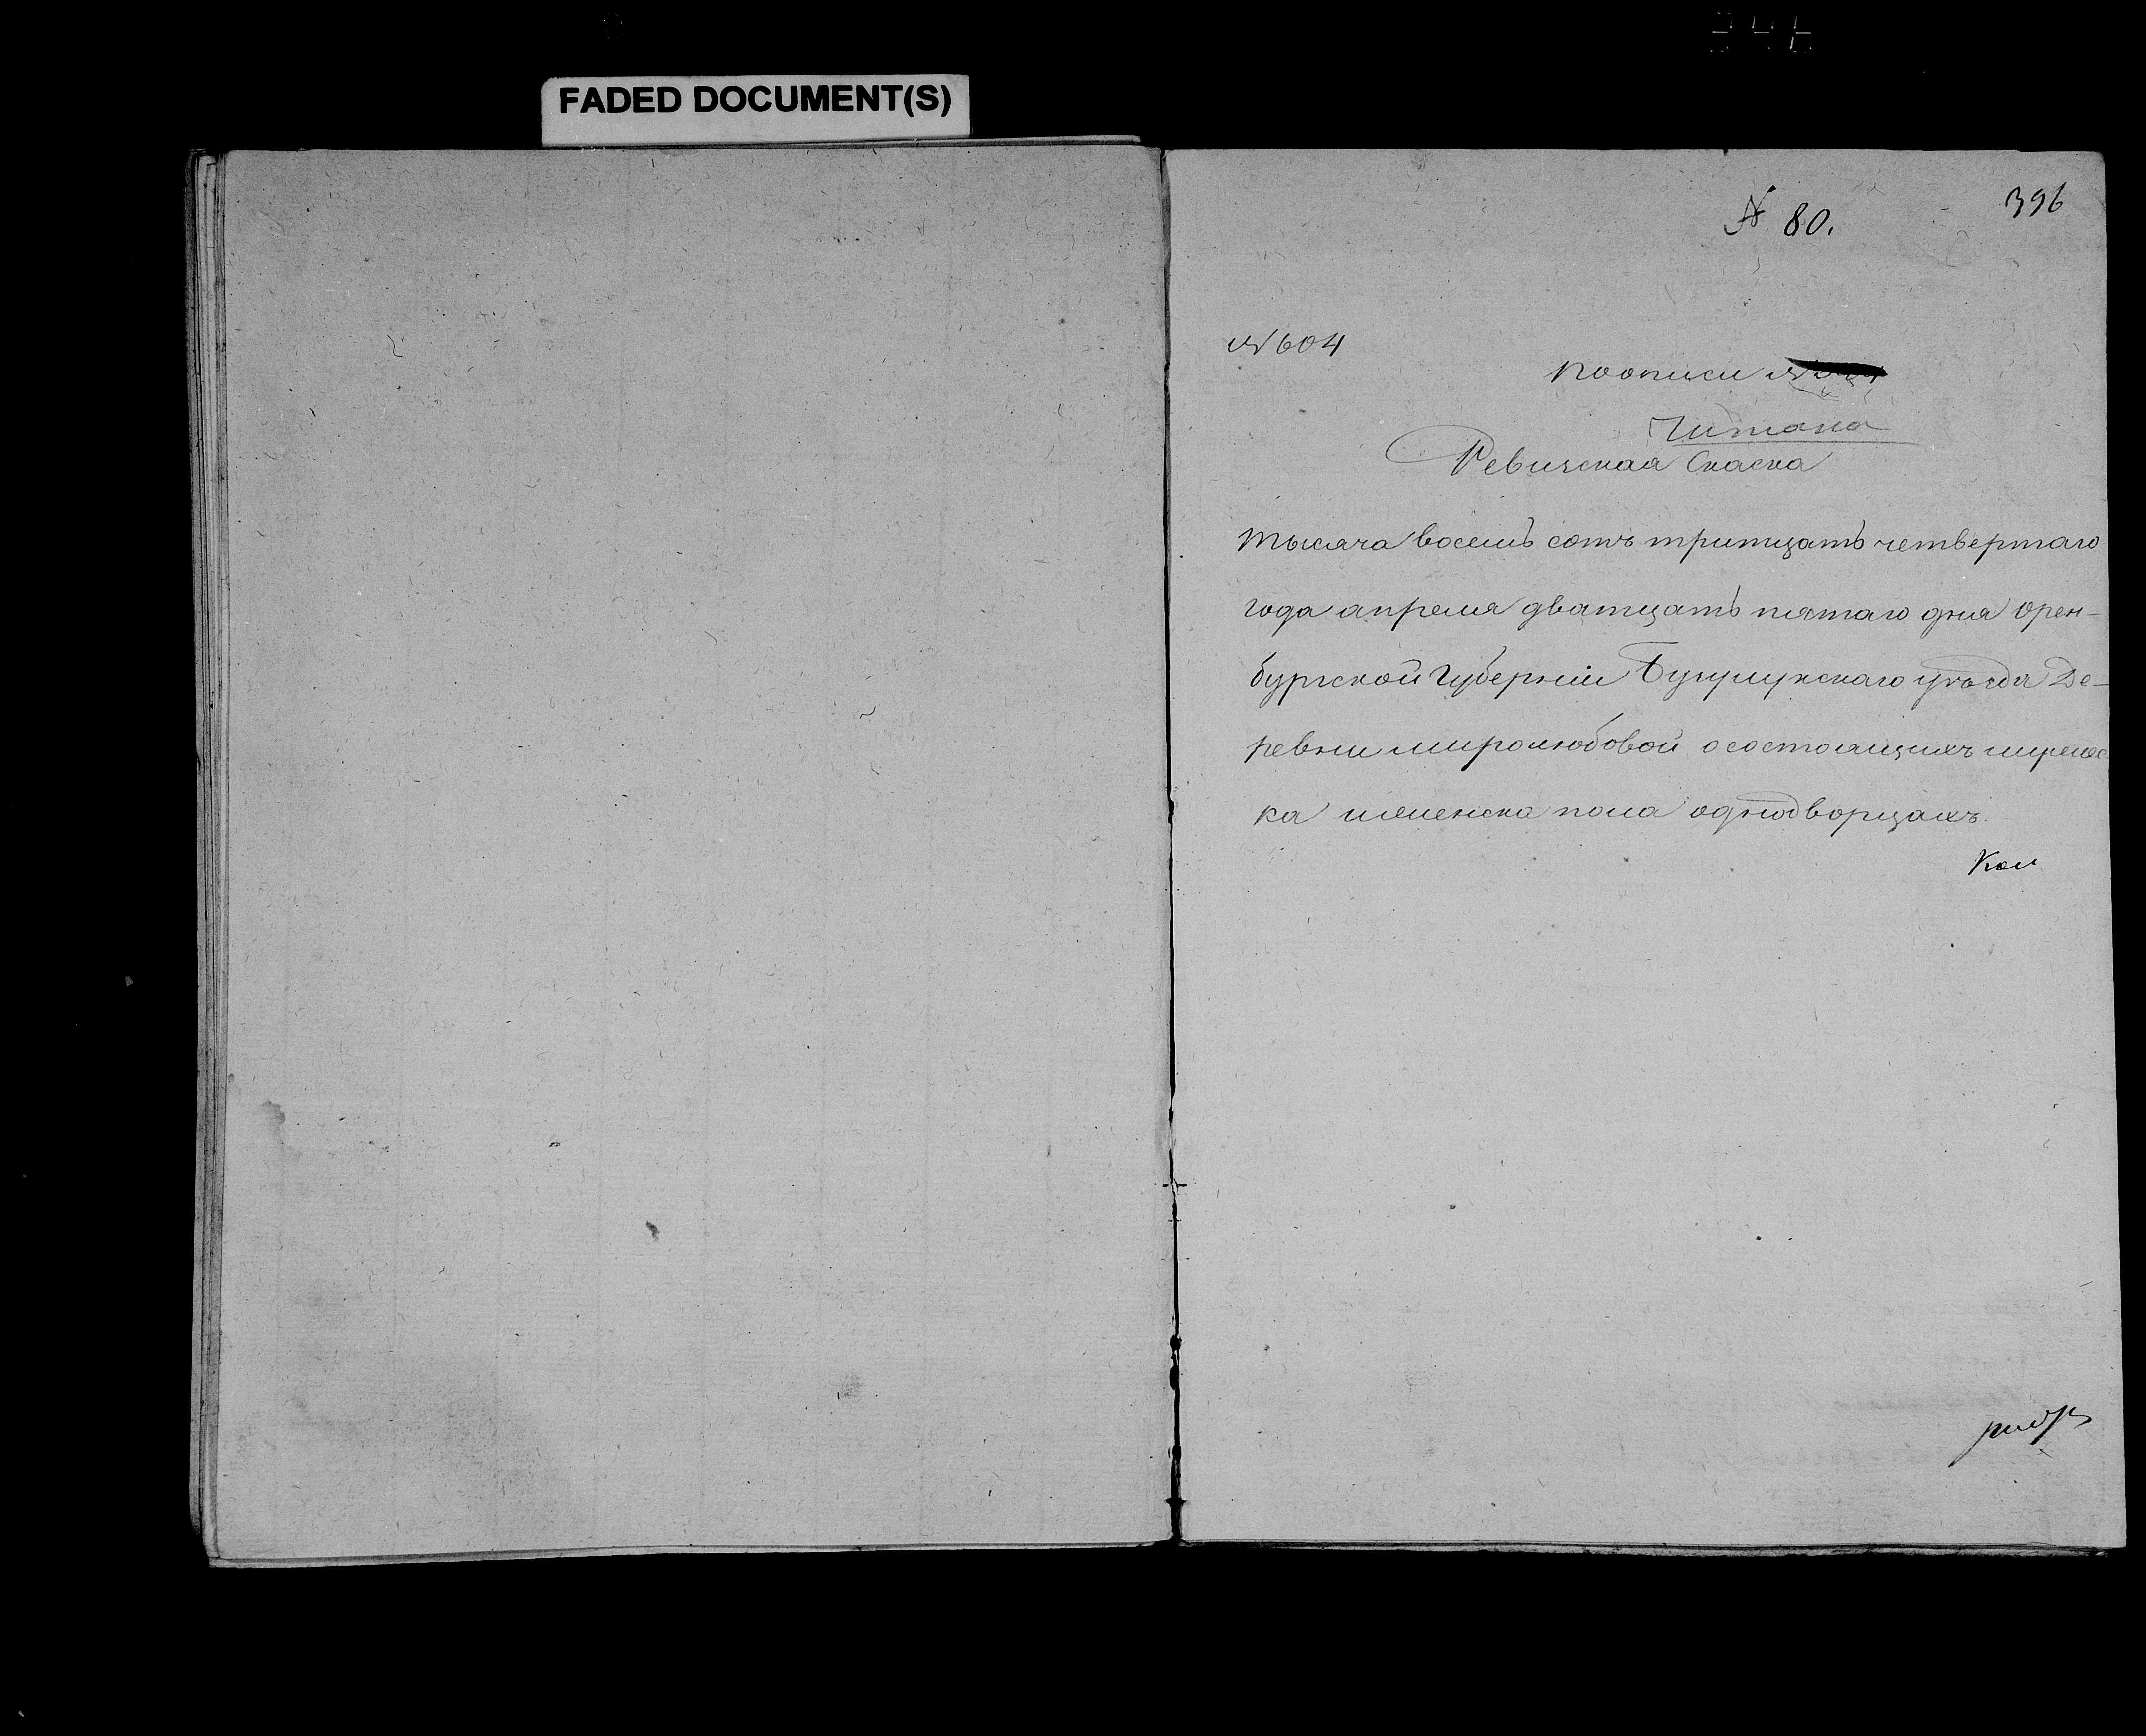 FADED DOCUMENT(S)
396
N 80.
N 604
поописи N
Читана
Ревизская Скаска
тысяча восемь сотъ тритцать четвертаго
года апреля дватцать пятаго дня Орен-
бургской губерніи Бузулукскаго уѣзда Де-
ревни миролюбовой осостоящихъ
ка иженска пола однодворцахъ